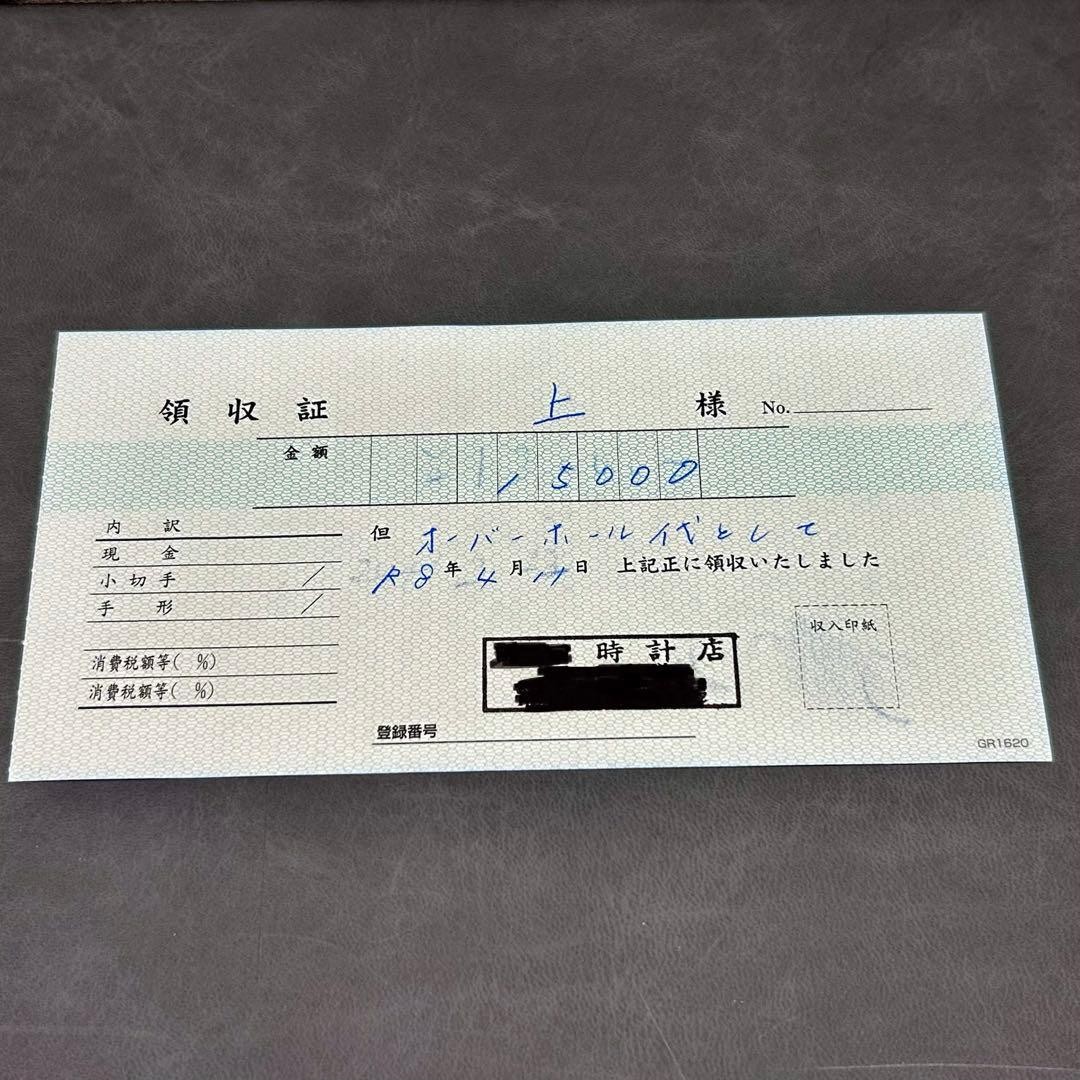 領収証 上 様 No.
金額 15000
但 オーバーホール代として
R8年4月11日 上記正に領収いたしました
内訳
現金
小切手 /
手形 /
消費税額等( %)
消費税額等( %)
時計店
収入印紙
登録番号
GR1620